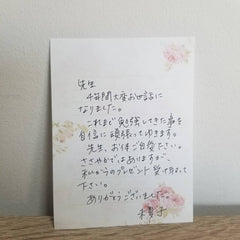 先生
4年間大変お世話に
なりました。
これまで勉強してきた事を
自信に頑張ってゆきます。
先生、お体ご自愛ださい。
ささやかではありますが、
私からのプレゼント受け取って
下さい。
ありがとうございました。